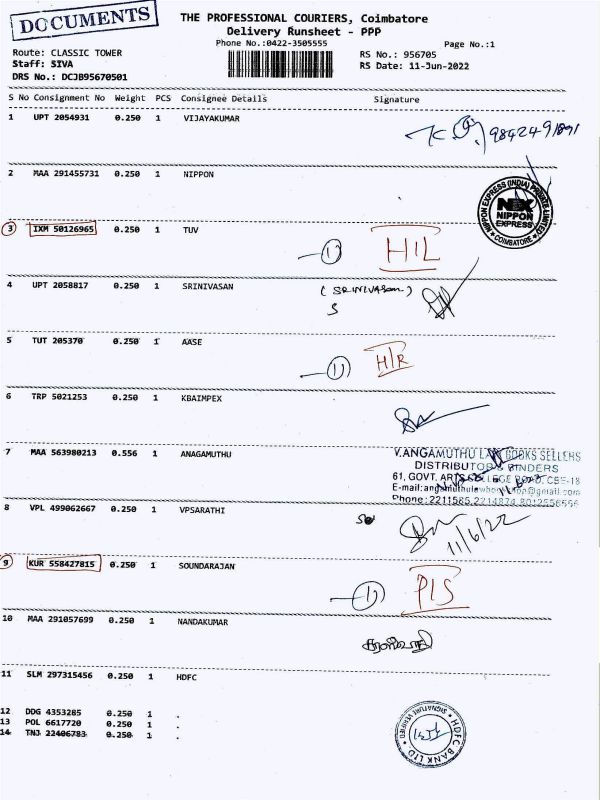 DOCUMENTS
THE PROFESSIONAL COURIERS, Coimbatore
Delivery Runsheet - PPP
Phone No.:0422-3505555
Page No.:1
Route: CLASSIC TOWER
Staff: SIVA
DRS No.: DCJB95670501
RS No.: 956705
RS Date: 11-Jun-2022
S No Consignment No Weight PCS Consignee Details Signature
1 UPT 2054931 0.250 1 VIJAYAKUMAR
2 MAA 291455731 0.250 1 NIPPON
NIPPON EXPRESS (INDIA) PRIVATE LIMITED
NEX
NIPPON
EXPRESS
COIMBATORE
3 IXM 50126965 0.250 1 TUV
4 UPT 2058817 0.250 1 SRINIVASAN (SRINIVASAN)
S
5 TUT 205370 0.250 1 AASE
6 TRP 5021253 0.250 1 KBAIMPEX
7 MAA 563980213 0.556 1 ANAGAMUTHU
V.ANGAMUTHU LAW BOOKS SELLERS
DISTRIBUTORS BINDERS
61, GOVT. ARTS COLLEGE ROAD, CBE-18
Phone: 2211585, 2214874
8 VPL 499062667 0.250 1 VPSARATHI
11/6/22
9 KUR 558427815 0.250 1 SOUNDARAJAN
10 MAA 291057699 0.250 1 NANDAKUMAR
11 SLM 297315456 0.250 1 HDFC
12 DDG 4353285 0.250 1 .
13 POL 6617720 0.250 1 .
14 TNJ 22406783 0.250 1 .
HDFC BANK LTD.
SIGNATURE VERIFIED